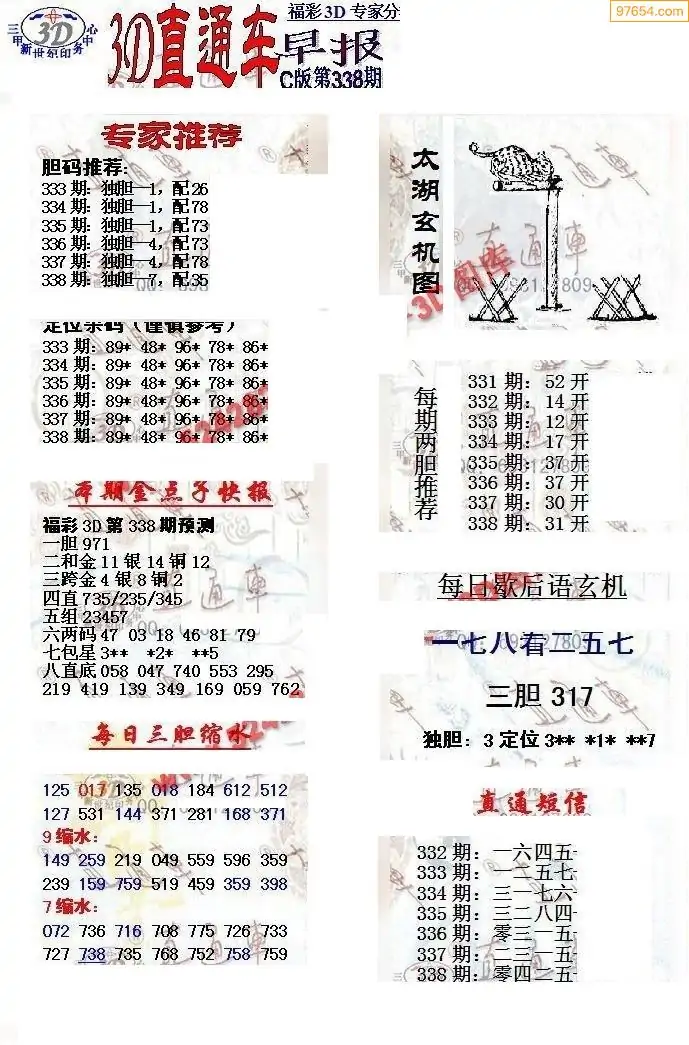 福彩3D 专家分
97654.com
三 3D 心
甲新世纪印务中
3D直通车
早报
C版第338期
专家推荐
胆码推荐:
333 期: 独胆—1, 配26
334 期: 独胆—1, 配78
335 期: 独胆—1, 配73
336 期: 独胆—4, 配73
337 期: 独胆—4, 配78
338 期: 独胆—7, 配35
定位杀码（谨慎参考）
333 期: 89* 48* 96* 78* 86*
334 期: 89* 48* 96* 78* 86*
335 期: 89* 48* 96* 78* 86*
336 期: 89* 48* 96* 78* 86*
337 期: 89* 48* 96* 78* 86*
338 期: 89* 48* 96* 78* 86*
本期金点子快报
福彩 3D 第 338 期预测
一胆 971
二和金 11 银 14 铜 12
三跨金 4 银 8 铜 2
四直 735/235/345
五组 23457
六两码 47 03 18 46 81 79
七包星 3** *2* **5
八直底 058 047 740 553 295
219 419 139 349 169 059 762
每日三胆缩水
125 017 135 018 184 612 512
127 531 144 371 281 168 371
9 缩水:
149 259 219 049 559 596 359
239 159 759 519 459 359 398
7 缩水:
072 736 716 708 775 726 733
727 738 735 768 752 758 759
太湖玄机图
每期两胆推荐
331 期: 52 开
332 期: 14 开
333 期: 12 开
334 期: 17 开
335 期: 37 开
336 期: 37 开
337 期: 30 开
338 期: 31 开
每日歇后语玄机
一七八看二五七
三胆 317
独胆: 3 定位 3** *1* **7
直通短信
332 期: 一六四五
333 期: 一二五七
334 期: 三一七六
335 期: 三二八四
336 期: 零三一五
337 期: 二三一五
338 期: 零四二五